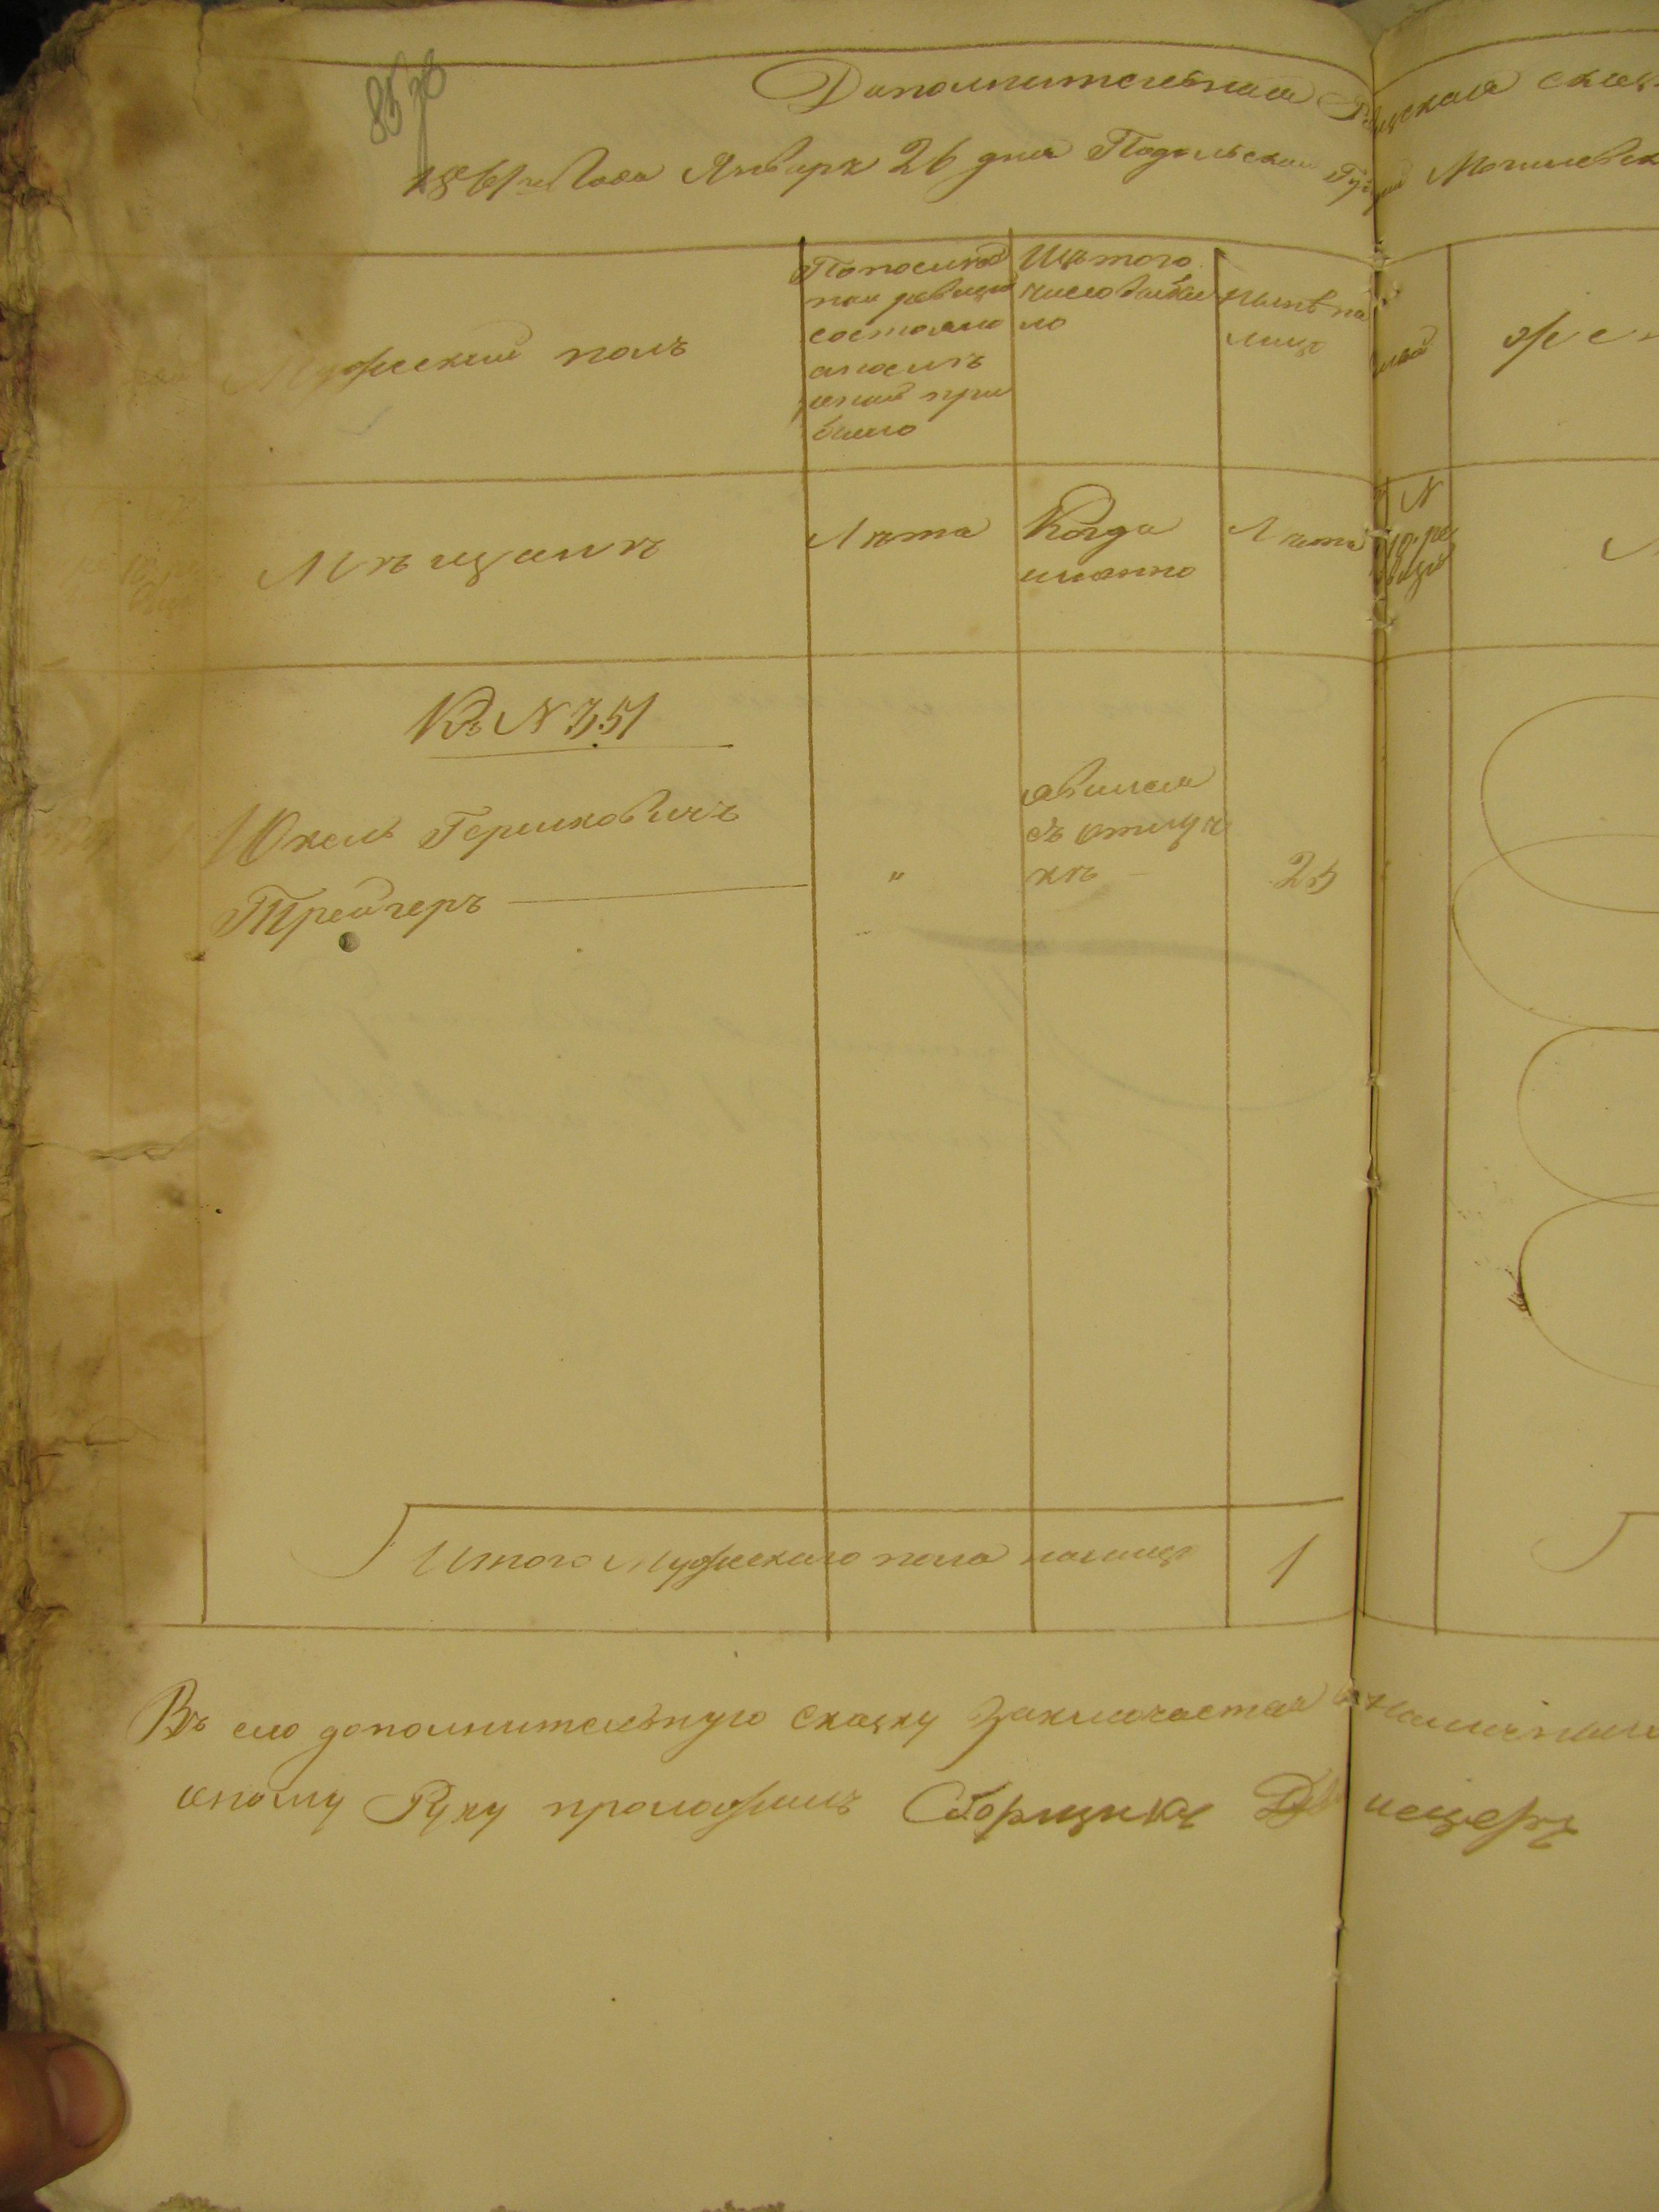 Дополнительная Ревизская сказ
1861го Года Января 26 дня Подольской Губернии Могилевск
Мужеский полъ
По последней ревизіи состояло и после оной прибыло
Изъ того числа выбыло
Ныне на лицо
Жен
Мѣщанъ
Лѣта
Когда именно
Лѣта
N 10. ревизіи
Къ N 351
Юкель Гершковичъ
Трейгеръ
"
явился съ отлучки
25
Итого Мужескаго пола налицо
1
Въ сію дополнительную сказку Заключается наличныхъ
оному Руку приложилъ Сборщикъ